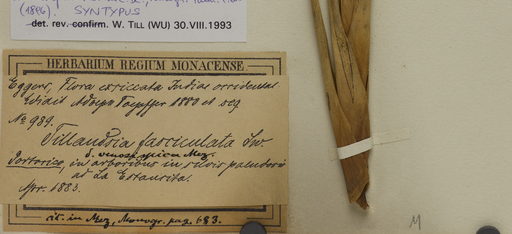 (1896). SYNTYPUS
det. rev. confirm. W. TILL (WU) 30.VIII.1993
HERBARIUM REGIUM MONACENSE
Eggers, Flora exsiccata Indiae occidental
Edidit Adolph Toepffer 1882 et seq
No 989.
Tillandsia fasciculata Sw.
δ. venosispica Mez.
Portorico, in arboribus in silvis paludosis
ad La Estancita.
Apr. 1883.
cit. in Mez, Monogr. pag. 683.
M